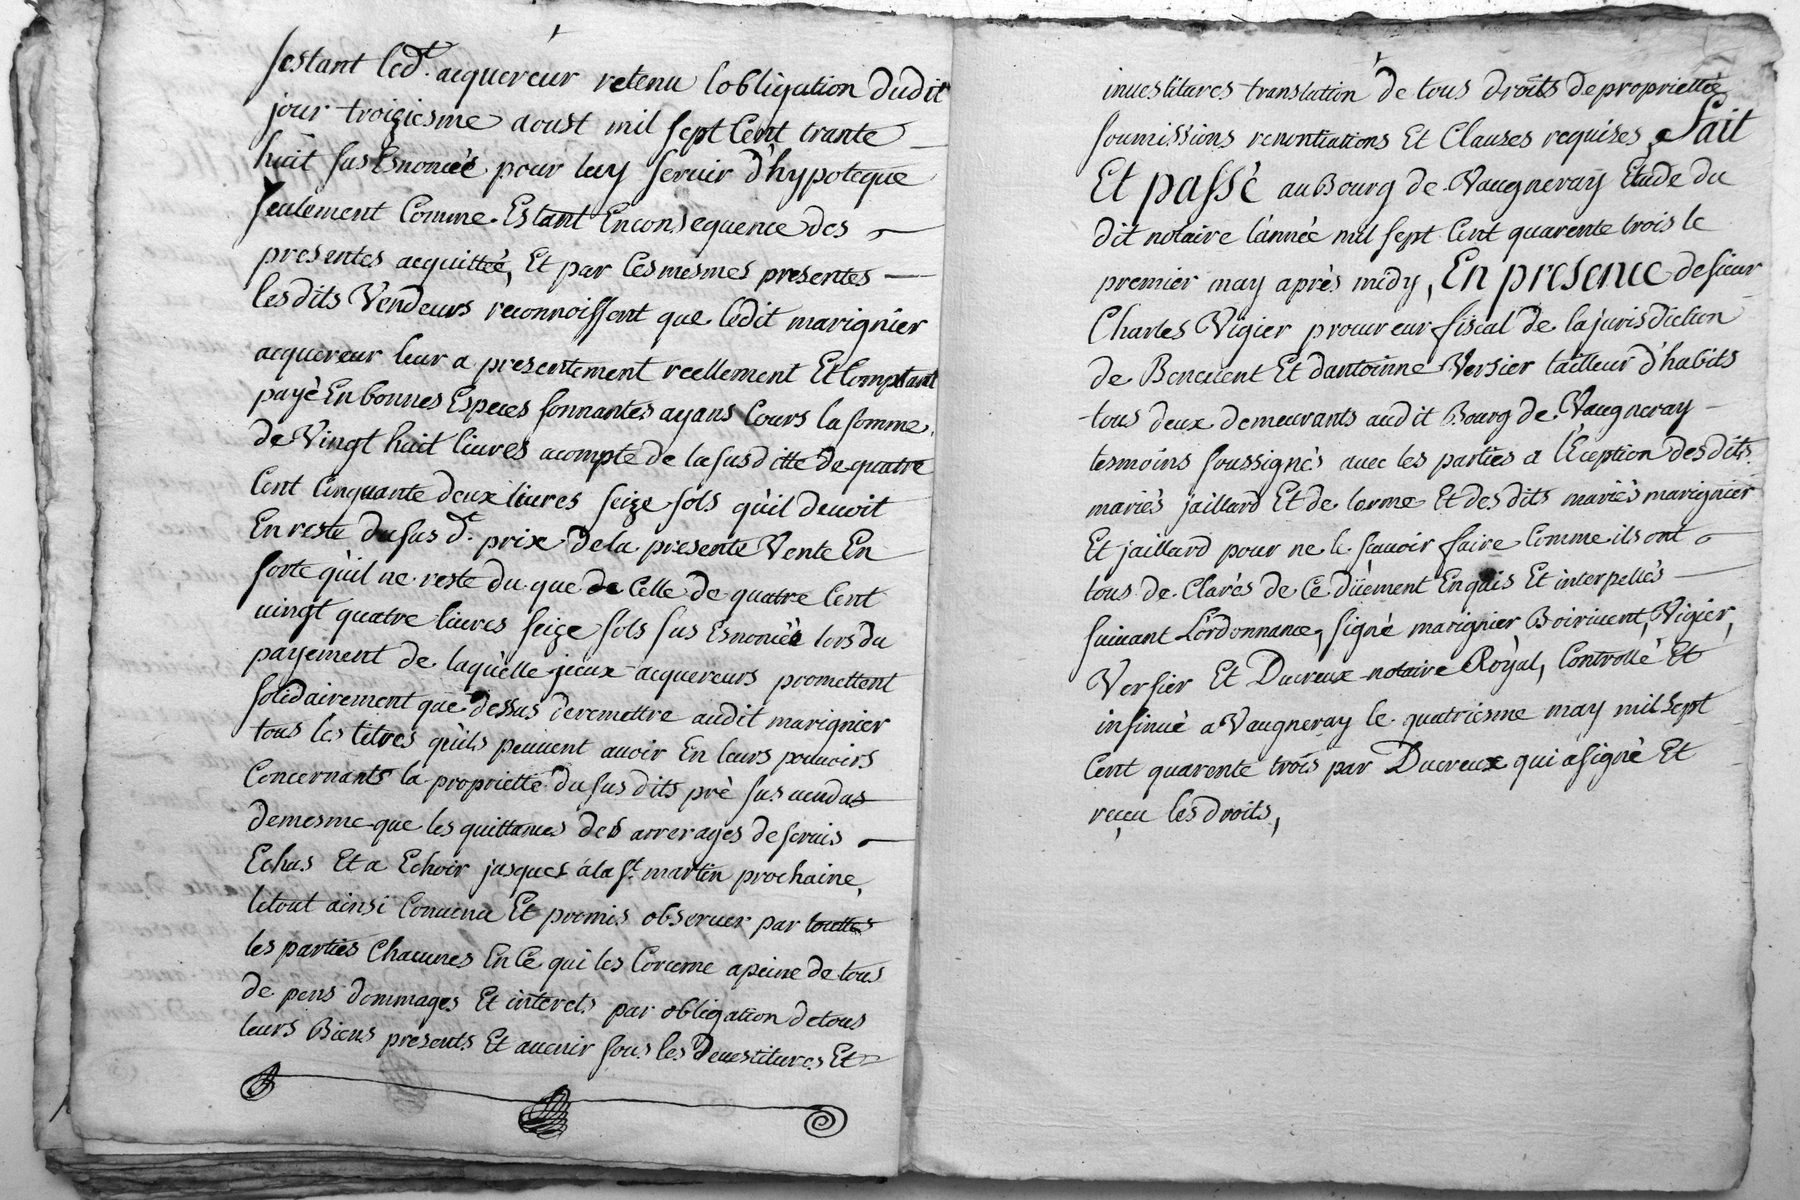 sestant led.t acquereur retenu lobligation dudit
jour troiziesme aoust mil sept Cent trante
huit sus Esnoncée pour luy servir d'hypoteque
seulement Comme Estant Enconsequence des
presentes acquittée, Et par Ces mesmes presentes
lesdits Vendeurs reconnoissent que ledit marignier
acquereur leur a presentement reellement Et Comptant
payé En bonnes Especes sonnantes ayans Cours la somme
de Vingt huit livres acompte de la susditte de quatre
Cent Cinquante deux livres seize sols qu'il devoit
En reste du sus d.t prix de la presente Vente En
sorte qu'il ne reste du que de Celle de quatre Cent
vingt quatre livres seize sols sus Esnoncée lors du
payement de laquelle jceux acquereurs promettent
solidairement que dessus de remettre audit marignier
tous les titres qu'ils peuvent avoir En leurs pouvoirs
Concernants la proprietté du susdits pré sus vendus
demesme que les quittances des arrerages de servis
Echus Et a Echoir jusques à la S.t martin prochaine,
letout ainsi Convenu Et promis observer par touttes
les parties Chacunes En Ce qui les Concerne apeine de tous
de pens dommages Et interets par obligation detous
leurs Biens presents Et avenir sous les Devestitures Et
investitures translation de tous droits de proprietté
soumissions renontiations Et Clauses requises, Fait
Et passé au Bourg de Vaugneray Etude du
dit notaire l'année mil sept Cent quarente trois le
premier may après midy, En presence de sieur
Charles Vigier procureur fiscal de la jurisdiction
de Benevent Et dantoinne Versier tailleur d'habits
tous deux demeurants audit Bourg de Vaugneray
tesmoins soussignés avec les parties a l'Eception des dits
mariés jaillard Et de lorme Et des dits mariés marignier
Et jaillard pour ne le sçavoir faire Comme ils ont
tous de Clarés de Ce düement Enquis Et interpellés
suivant L'ordonnance, signé marignier Boirivent, Vigier,
Versier Et Ducreux notaire Royal, Controllé Et
insinué a Vaugneray le quatriesme may mil sept
Cent quarente trois par Ducreux qui a signé Et
reçeu les droits,